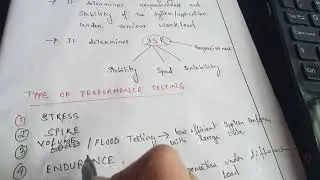 → It determines responsiveness and
Stability of the System/application
under various workload
→ It determines 3SR
Responsiveness
Stability Speed Scalability
TYPES OF PERFORMANCE TESTING
① STRESS
② SPIKE
③ VOLUME / FLOOD Testing → how efficient System performs
with large data
④ ENDURANCE
under different